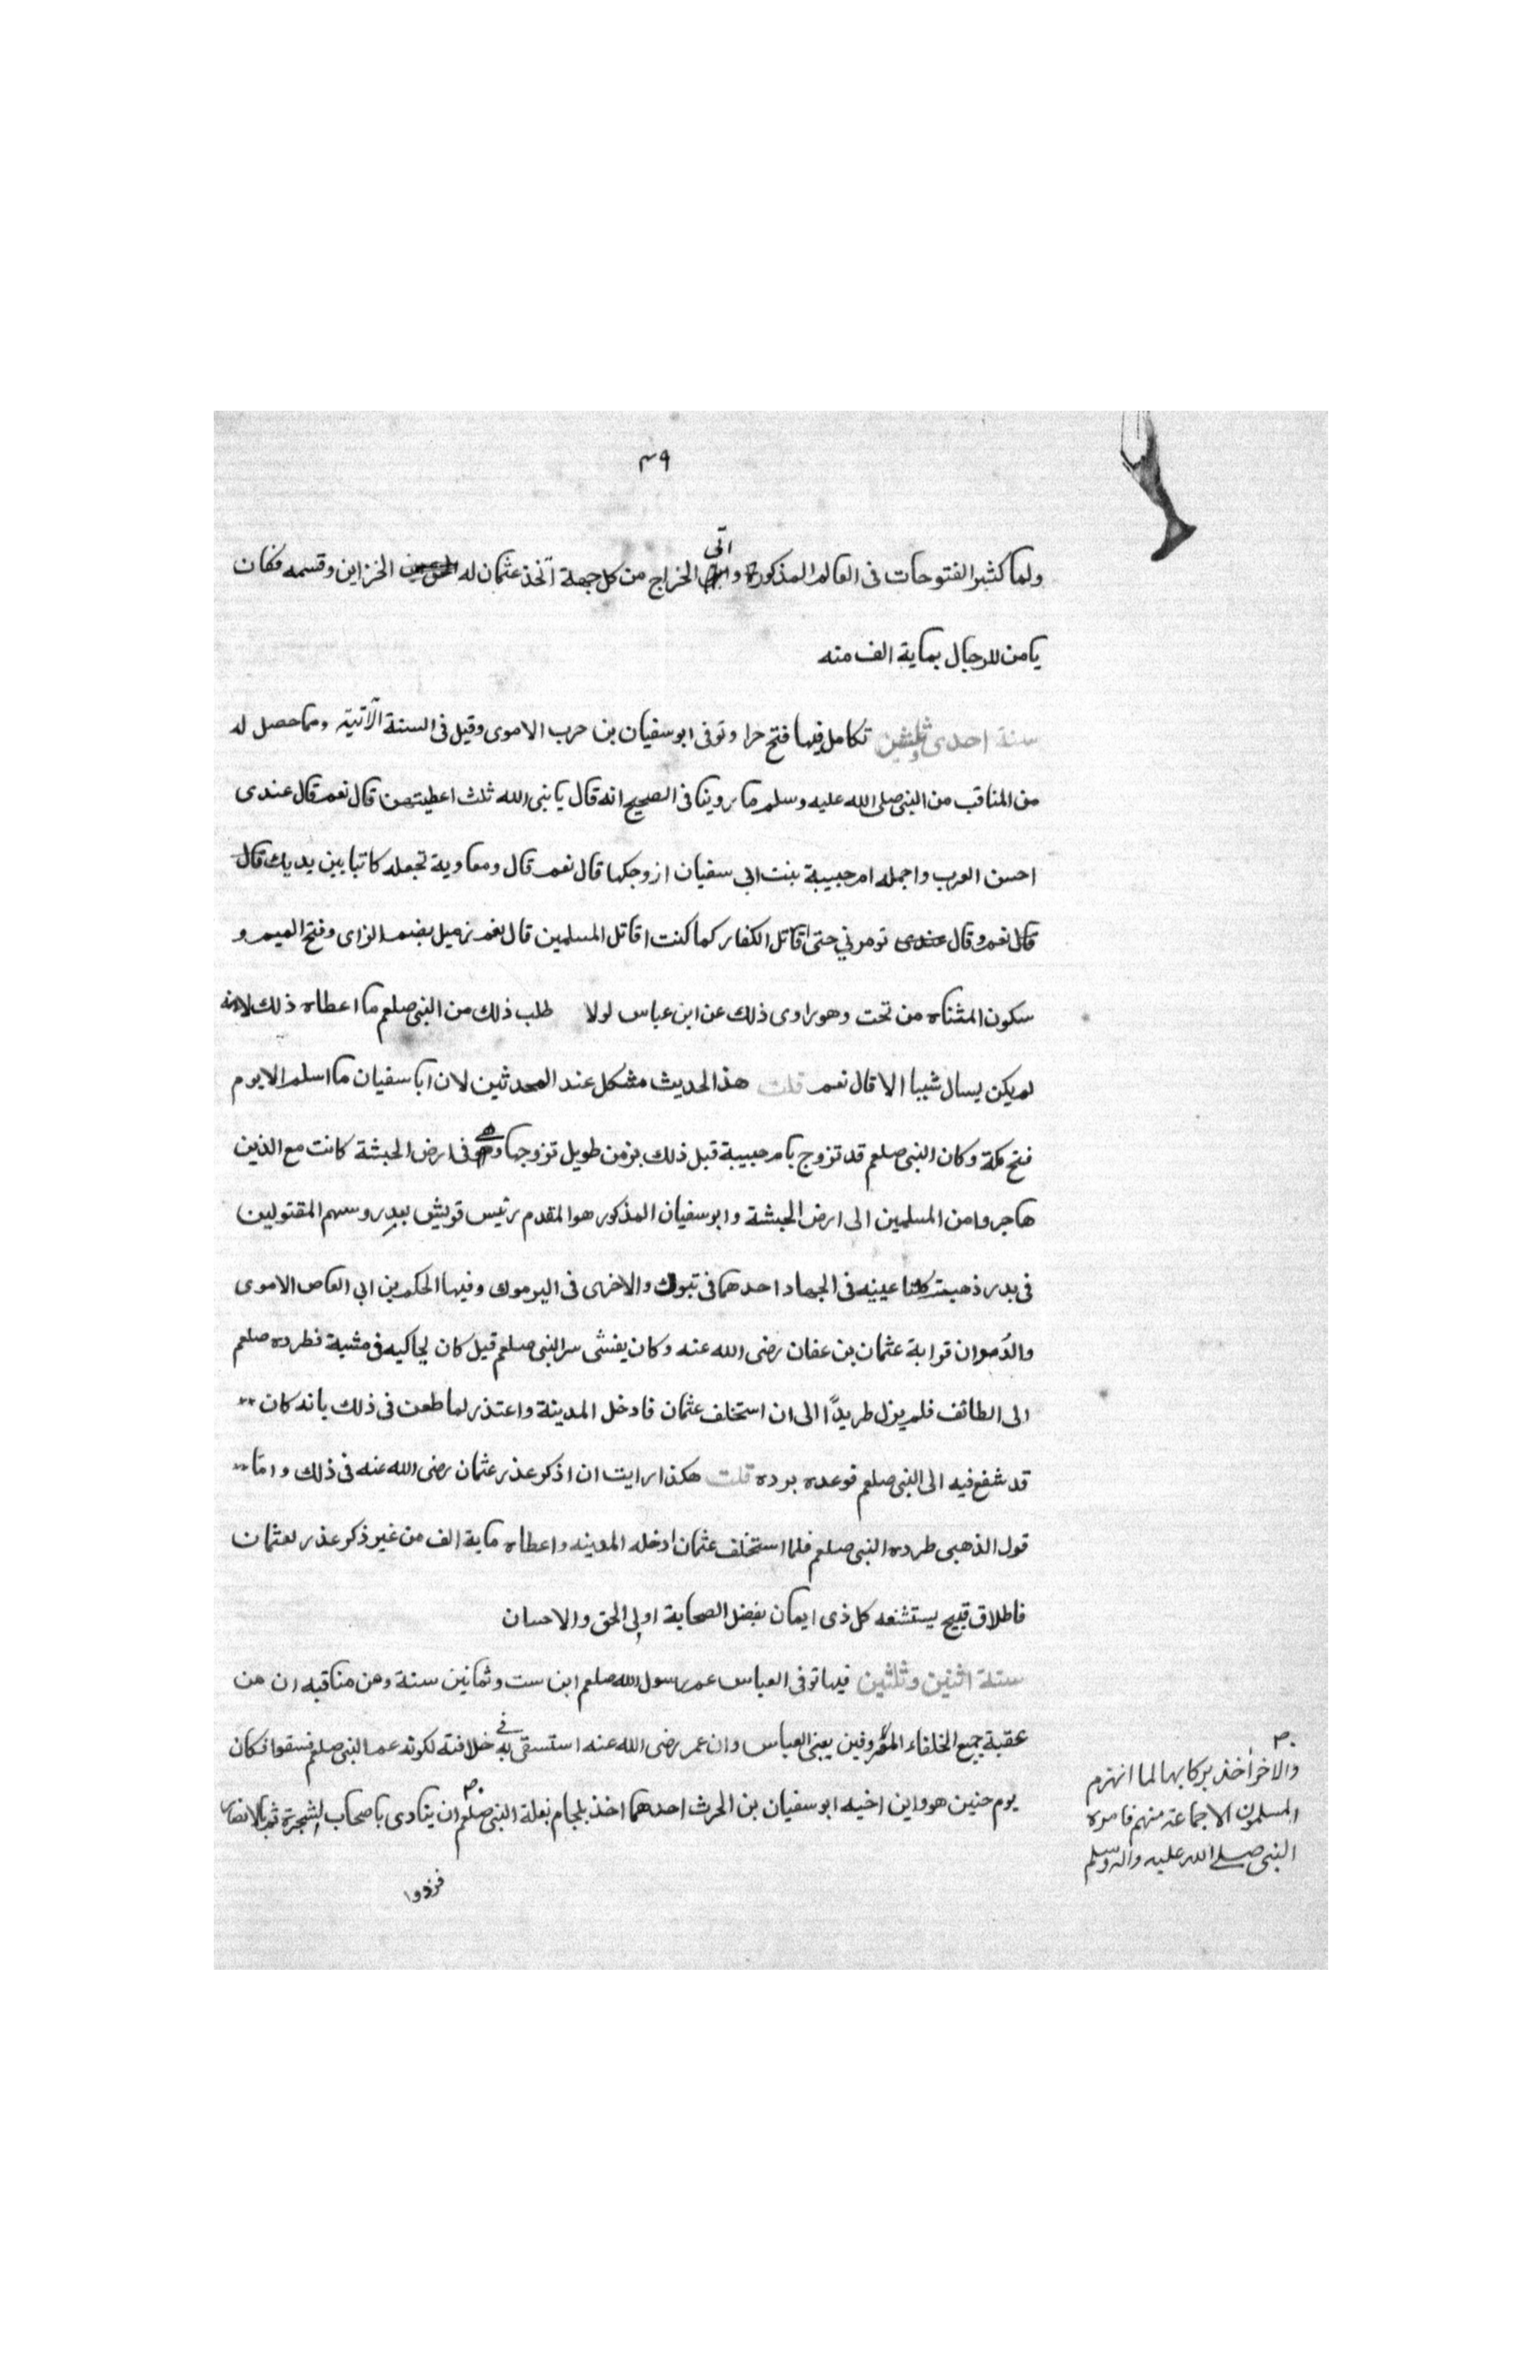 ٤٩
ولما كثير الفتوحات فى العالم المذكورة واتى الخراج من كل جهة اتخذ عثمان له الخزاين وقسمه فكان
يامن للرجال بماية الف منه
سنة احدى وثلثين تكامل فيها فتح حرا وتوفى ابو سفيان بن حرب الاموى وقيل فى السنة الآتية ومما حصل له
من المناقب من النبى صلى الله عليه وسلم ما روينا فى الصحيح انه قال يا نبى الله ثلث اعطيتهن قال نعم قال عندى
احسن العرب واجمله ام حبيبة بنت ابى سفيان ازوجكها قال نعم قال ومعاوية تجعله كاتبا بين يديك قال
قال نعم وقال عندى تومرنى حتى اقاتل الكفار كما كنت اقاتل المسلمين قال نعم زميل بضم الزاى وفتح الميم و
سكون المثناه من تحت وهو راوى ذلك عن ابن عباس لولا طلب ذلك من النبى صلعم ما اعطاه ذلك لانه
لم يكن يسال شيبا الا قال نعم قلت هذا الحديث مشكل عند المحدثين لان ابا سفيان ما اسلم الا يوم
فتح مكة وكان النبى صلعم قد تزوج بام حبيبة قبل ذلك بزمن طويل تزوجها وهى فى ارض الحبشة كانت مع الذين
هاجروا من المسلمين الى ارض الحبشة وابو سفيان المذكور هو المقدم رئيس قريش ببدر وسهم المقتولين
فى بدر ذهبت كلتا عينيه فى الجهاد احدهما فى تبوك والاخرى فى اليرموك وفيها الحكم بن ابى العاص الاموى
والدمروان قرابة عثمان بن عفان رضى الله عنه وكان يفشى سر النبى صلعم قيل كان يحاكيه فى مشية فطرده صلعم
الى الطائف فلم يزل طريدًا الى ان استخلف عثمان فادخل المدينة واعتذر لما طعن فى ذلك بانه كان
قد شفع فيه الى النبى صلعم فوعده برده قلت هكذا رايت ان اذكر عذر عثمان رضى الله عنه فى ذلك واما
قول الذهبى طرده النبى صلعم فلما استخلف عثمان ادخله المدينه واعطاه ماية الف من غير ذكر عذر لعثمان
فاطلاق قبيح يستشنعه كل ذى ايمان بفضل الصحابة اولى الحق والاحسان
سنة اثنين وثلثين فيها توفى العباس عم رسول الله صلعم ابن ست وثمانين سنة ومن مناقبه ان من
عقبة جميع الخلفاء المعروفين يعنى العباس وان عمر رضى الله عنه استسقى به فى خلافته لكونه عم النبى صلعم فسقوا فكان
يوم حنين هو وابن اخيه ابو سفيان بن الحرث احدهما اخذ بلجام بغلة النبى صلعم ان ينادى باصحاب الشجرة ثم بالانصار
والاخر أخذ بركابها لما انهزم
المسلمون الا جماعة منهم فامره
النبى صلى الله عليه واله وسلم